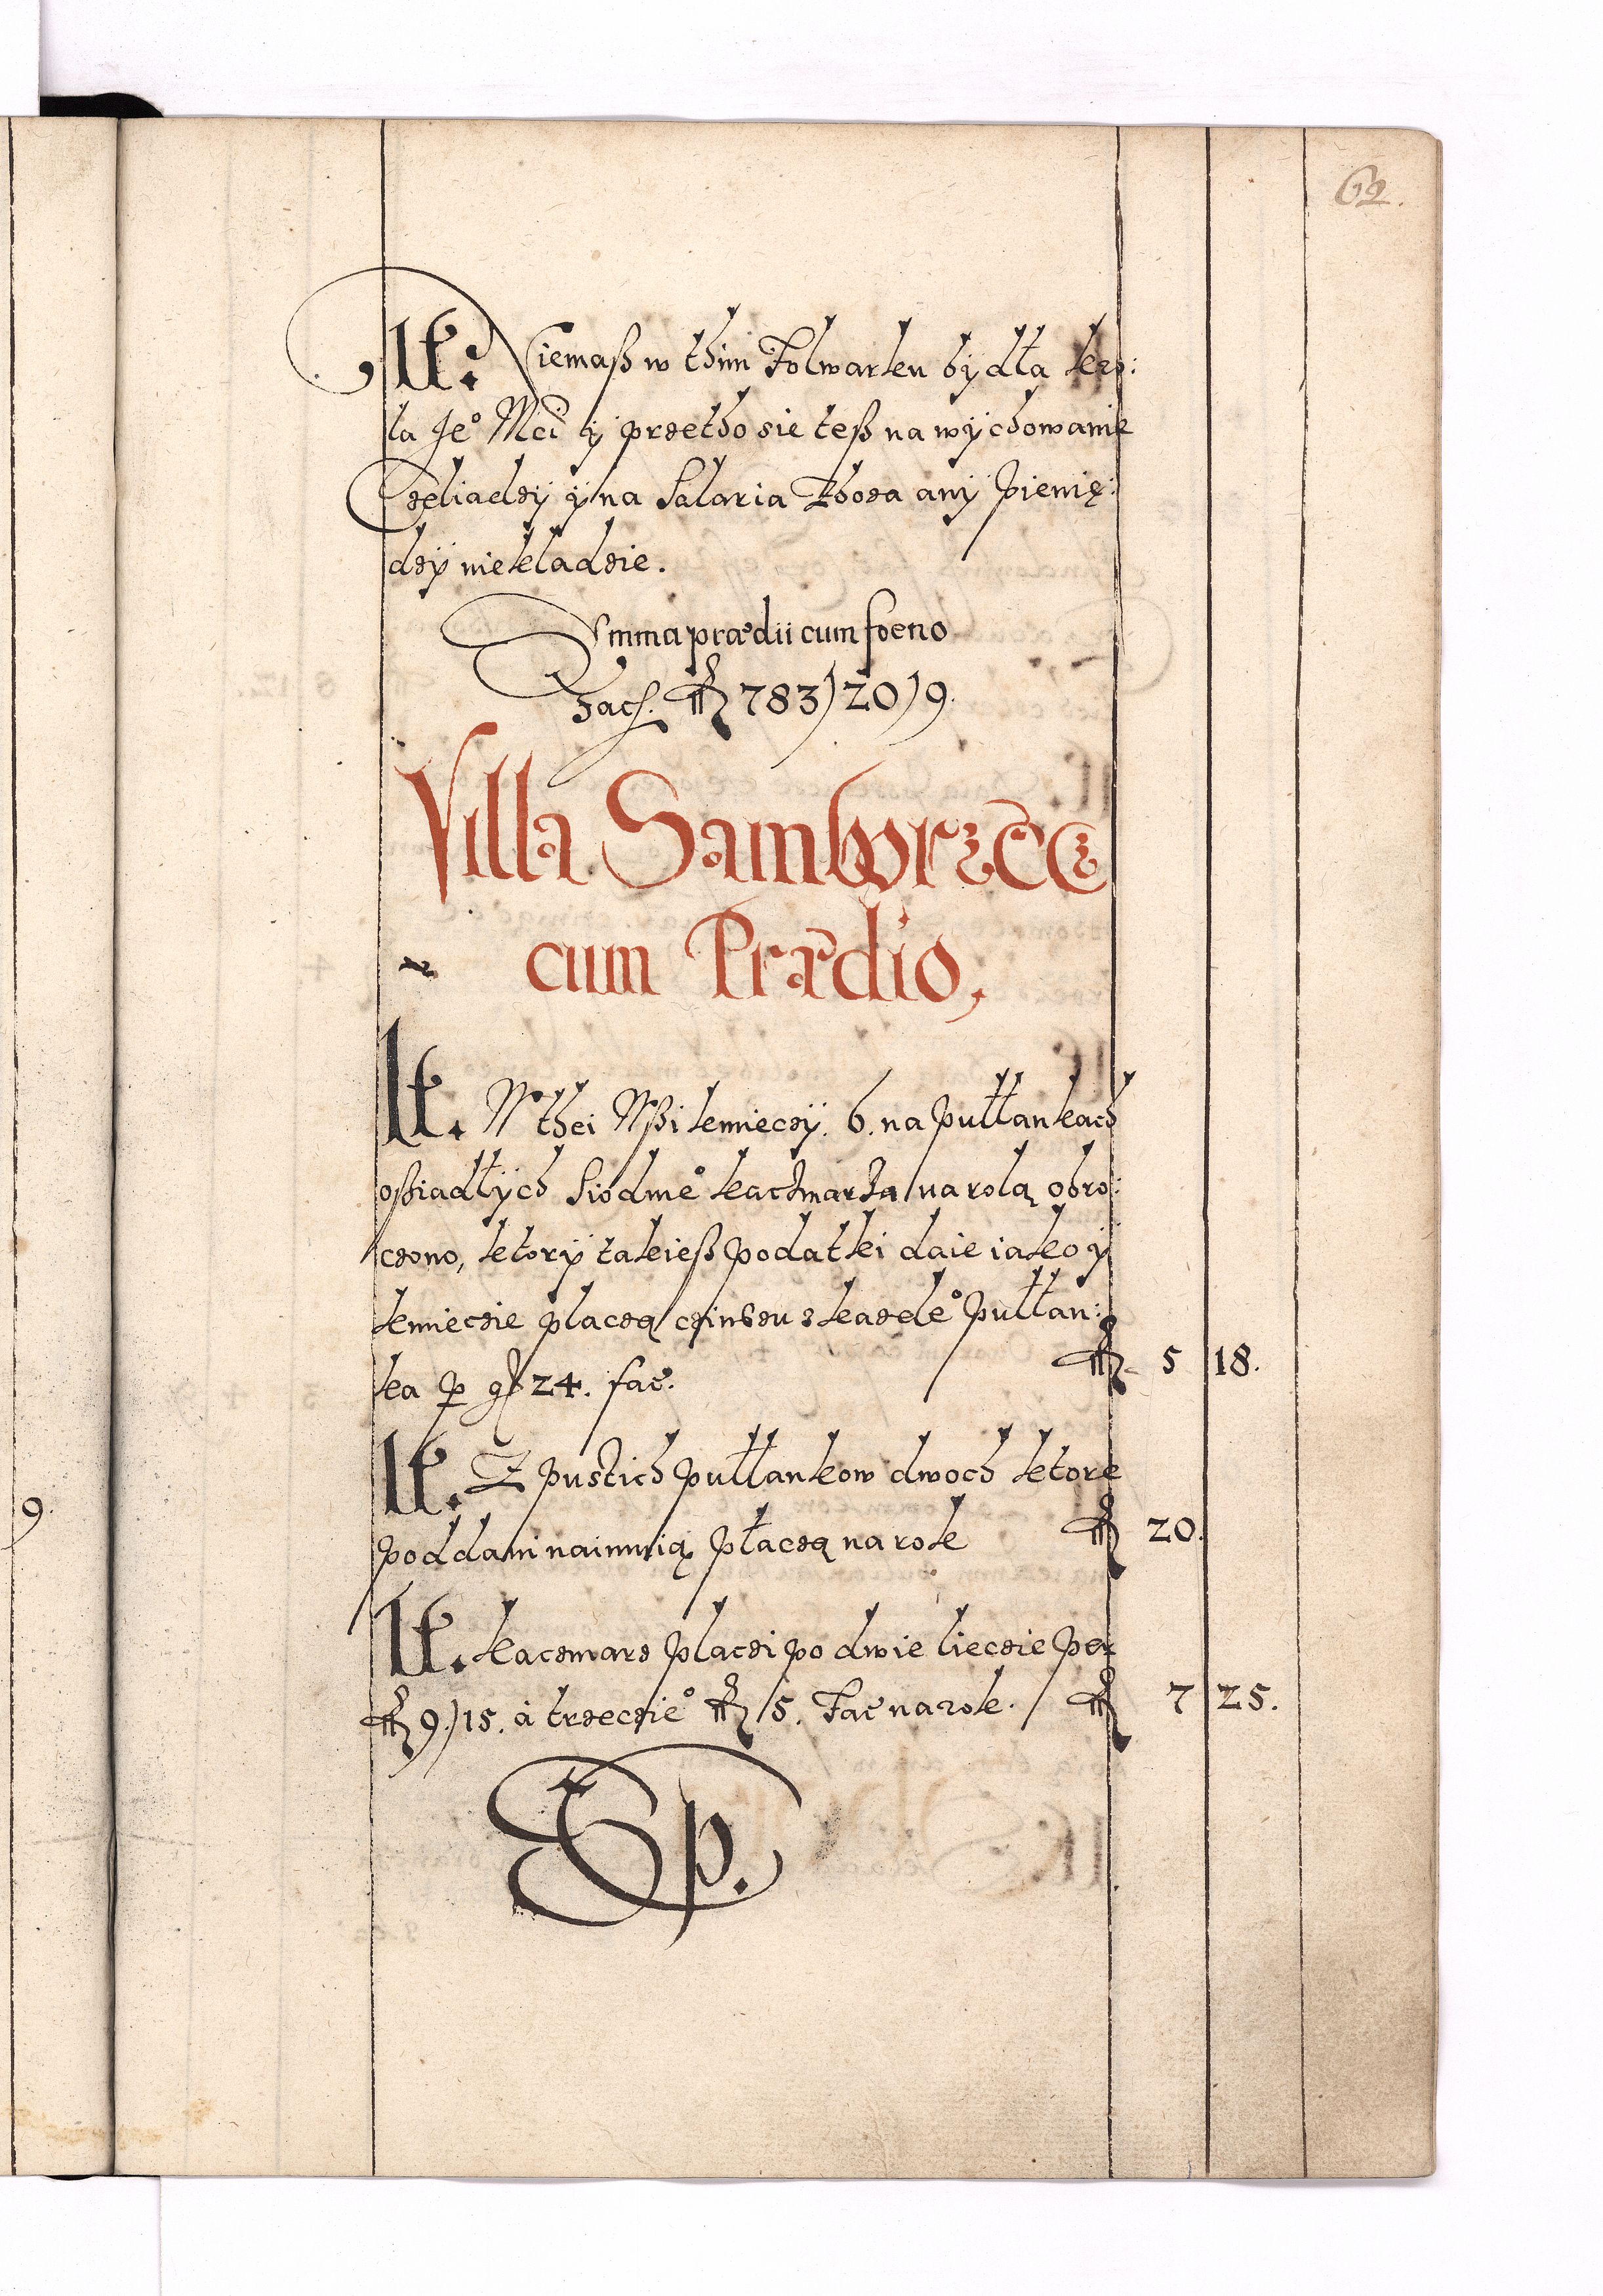 62.
It: Niemaß w thim Folwarku bydła kro:
la Je° Mci y przetho sie teß na wychowanie
Czeliadzy y na Salaria Zboza any pienię:
dzy niekladzie.
Summa prædii cum foeno
Facf. fl 783)20)9.
Villa Samborzecz
cum Prædio,
It. W thei Wßi kmieczy. 6. na pułłankach
oßiadłych Siodme° kaczmarza na rolą obro:
czono, ktory takieß podatki daie iako y
kmieczie placzą czinßu z kazde° pułłan:
ka p gr 24. fac.
fl 5 18.
It. Z pustich pułłankow dwoch ktore
poddani naimuią płaczą na rok
fl 20.
It. kaczmarz placzi po dwie lieczie per
fl 9)15. à trzeczie° fl 5. Fac na rok.
fl 7 25.
9.